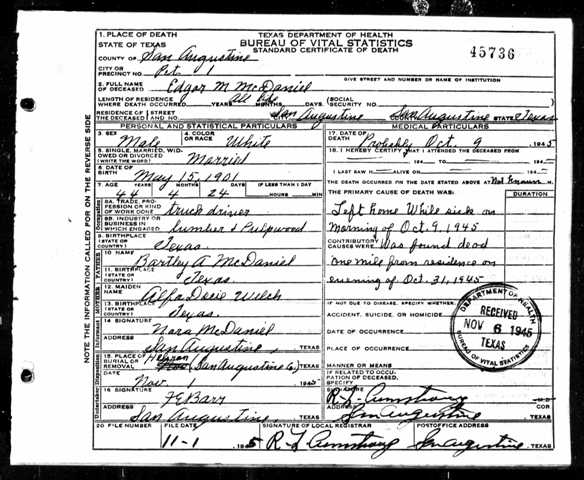 1. PLACE OF DEATH
STATE OF TEXAS
TEXAS DEPARTMENT OF HEALTH
BUREAU OF VITAL STATISTICS
STANDARD CERTIFICATE OF DEATH
45736
COUNTY OF San Augustine
CITY OR
PRECINCT NO. Pct 1
GIVE STREET AND NUMBER OR NAME OF INSTITUTION
2. FULL NAME
OF DECEASED Edgar M McDaniel
LENGTH OF RESIDENCE
WHERE DEATH OCCURRED All life YEARS MONTHS DAYS (SOCIAL SECURITY NO.
RESIDENCE OF THE DECEASED STREET NO. San Augustine San Augustine STATE Texas
PERSONAL AND STATISTICAL PARTICULARS
MEDICAL PARTICULARS
3. SEX Male
4. COLOR OR RACE White
17. DATE OF DEATH Probably Oct. 9 1945
5. SINGLE, MARRIED, WIDOWED OR DIVORCED (WRITE THE WORD) Married
18. I HEREBY CERTIFY THAT I ATTENDED THE DECEASED FROM
194 TO 194
6. DATE OF BIRTH May 15, 1901
I LAST SAW H ALIVE ON 194
7. AGE 44 4 24 IF LESS THAN 1 DAY HOURS MIN
THE DEATH OCCURRED ON THE DATE STATED ABOVE AT Not Known M
THE PRIMARY CAUSE OF DEATH WAS:
DURATION
8A. TRADE, PROFESSION OR KIND OF WORK DONE truck driver
Left home while sick on
8B. INDUSTRY OR BUSINESS IN WHICH ENGAGED lumber & Pulpwood
morning of Oct. 9, 1945
9. BIRTHPLACE (STATE OR COUNTRY) Texas
CONTRIBUTORY CAUSES WERE Was found dead
10. NAME Bartley A McDaniel
one mile from residence on
11. BIRTHPLACE (STATE OR COUNTRY) Texas
evening of Oct. 31, 1945
12. MAIDEN NAME Alfa Dexie Welch
13. BIRTHPLACE (STATE OR COUNTRY) Texas
IF NOT DUE TO DISEASE, SPECIFY WHETHER:
ACCIDENT, SUICIDE, OR HOMICIDE
14. SIGNATURE Nora McDaniel
DATE OF OCCURRENCE
ADDRESS San Augustine, TEXAS
PLACE OF OCCURRENCE
DEPARTMENT OF HEALTH
RECEIVED
NOV 6 1945
TEXAS
BUREAU OF VITAL STATISTICS
15. PLACE OF BURIAL OR REMOVAL (San Augustine Co) TEXAS
MANNER OR MEANS
IF RELATED TO OCCUPATION OF DECEASED, SPECIFY
DATE Nov. 1 1945
16. SIGNATURE F E Barr
R. L. Armstrong
ADDRESS San Augustine, TEXAS
San Augustine TEXAS
20. FILE NUMBER FILE DATE
SIGNATURE OF LOCAL REGISTRAR
POSTOFFICE ADDRESS
11-1 1945 R L Armstrong San Augustine, TEXAS
NOTE THE INFORMATION CALLED FOR ON THE REVERSE SIDE